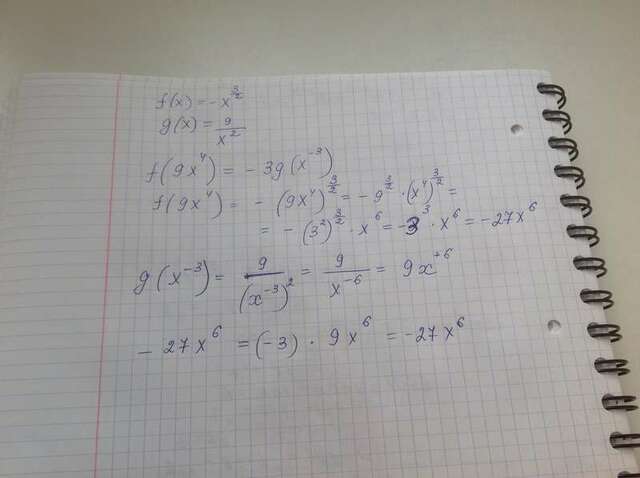 f(x) = - x^(3/2)
g(x) = 9/x^2
f(9x^4) = - 3g(x^-3)
f(9x^4) = - (9x^4)^(3/2) = - 9^(3/2) · (x^4)^(3/2) =
= - (3^2)^(3/2) · x^6 = -3^3 · x^6 = -27x^6
g(x^-3) = 9/(x^-3)^2 = 9/x^-6 = 9x^+6
- 27x^6 = (-3) · 9x^6 = -27x^6